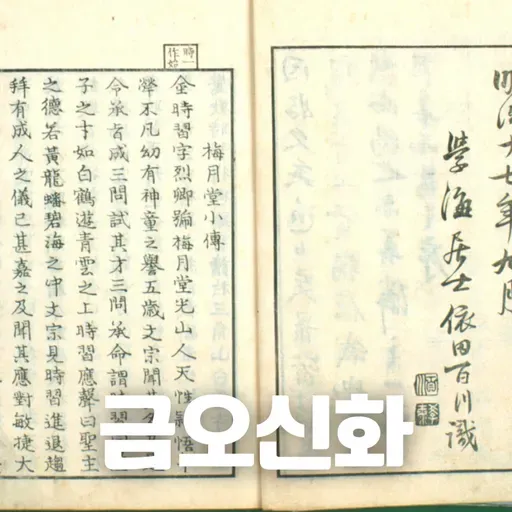 明治十七年九月
學海居士依田百川識
時一
作始
梅月堂小傳
金時習字烈卿號梅月堂光山人天性氣悟
犖不凡幼有神童之譽五歲文宗聞
令承旨成三問試其才三問承命謂時習
子之才如白鶴遊青雲之上時習應聲曰聖主
之德若黃龍蟠碧海之中文宗見時習進退趨
拜有成人之儀已甚嘉之及聞其應對敏捷大
금오신화